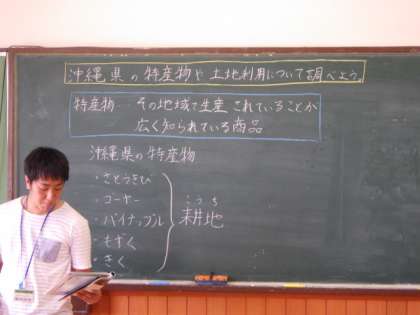 沖縄県の特産物や土地利用について調べよう。
特産物…その地域で生産されていることが
広く知られている商品
沖縄県の特産物
・さとうきび
・ゴーヤー
・パイナップル
・もずく
・きく
こうち
耕地